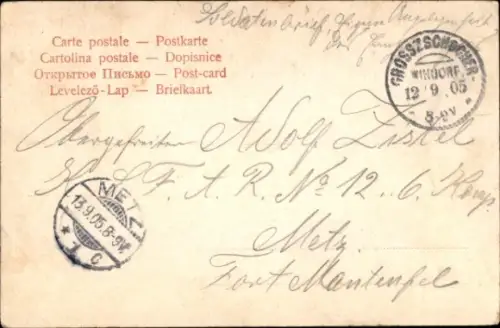 Soldatenbrief, Eigene Angelegenheit
des Empf
Carte postale — Postkarte
Cartolina postale — Dopisnice
Открытое Письмо — Post-card
Levelező-Lap — Briefkaart
GROSSZSCHOCHER-
WINDORF
12 9 05
8-9V
Obergefreiten Adolf Zistel
K. S. F. A. R. No 12. 6. Komp.
Metz.
Fort Manteufel
METZ
13.9.05.8-9V.
* 1 c